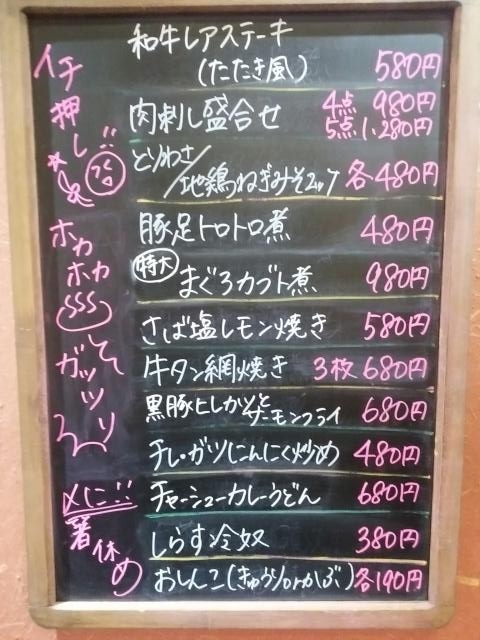 イチ押し!!
和牛レアステーキ
(たたき風) 580円
肉刺し盛合せ 4点 980円
5点 1,280円
とりわさ/
地鶏ねぎみそユッケ 各480円
ホカホカ
豚足トロトロ煮 480円
特大 まぐろカブト煮 980円
さば塩レモン焼き 580円
ガッツリ
牛タン網焼き 3枚 680円
黒豚ヒレかつと
サーモンフライ 680円
チレ・ガツにんにく炒め 480円
〆に!!
チャーシューカレーうどん 680円
箸休め
しらす冷奴 380円
おしんこ(きゅうりorかぶ) 各190円